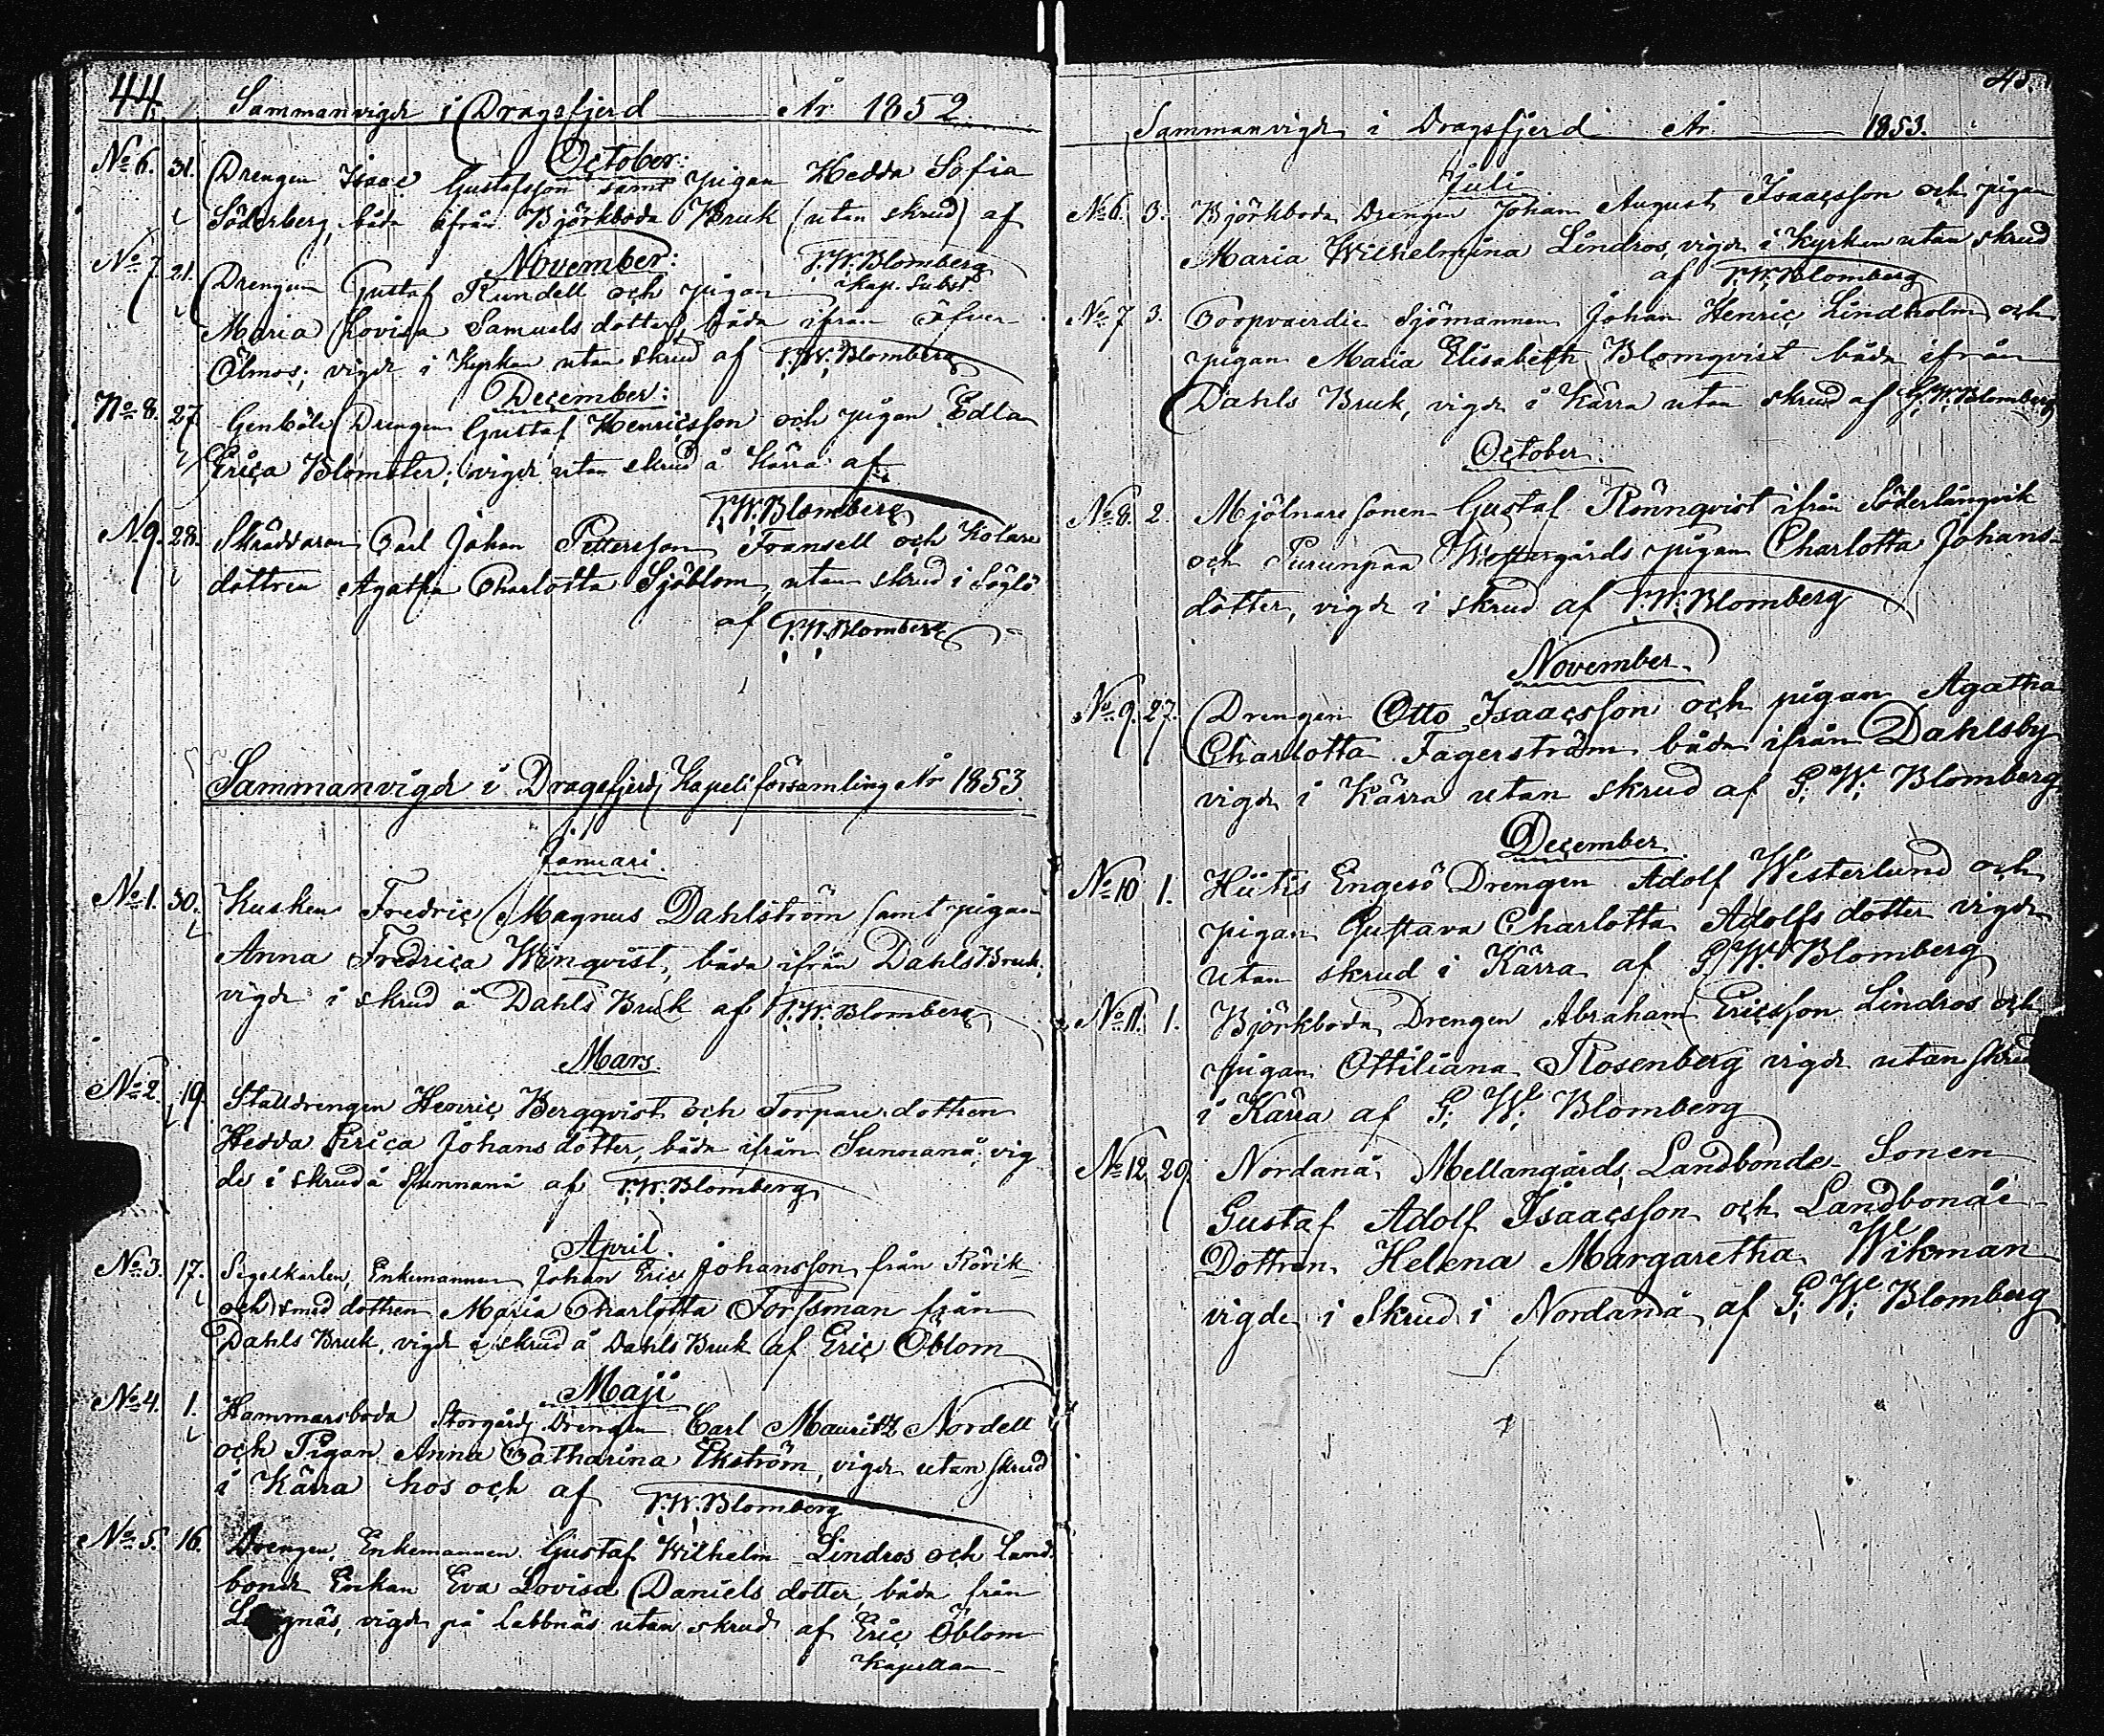 44.
Sammanvigde i Dragsfjerd År 1852
October:
No 6. 31. Drengen Isaac Gustafsson samt pigan Hedda Sofia
Söderberg, båda ifrån Björkboda Bruk (utan skrud) af
G.W. Blomberg
Kap. Subst
November:
No 7. 21. Drengen Gustaf Rundell och pigan
Maria Lovisa Samuelsdotter, båda ifrån Öfver-
Ölmos; vigde i Kyrkan utan skrud af G.W. Blomberg
December:
No 8. 27. Genböle Drengen Gustaf Henricsson och pigan Edla
Erica Blomster; vigde utan skrud å Kärra af
G.W. Blomberg
N 9. 28. Skräddaren Carl Johan Pettersson Fransell och Kolare
dottren Agatha Charlotta Sjöblom, utan skrud i Söglö
af G.W. Blomberg
Sammanvigde i Dragsfjerds Kapellförsamling År 1853.
Januari.
No 1. 30. Kusken Fredric Magnus Dahlström samt pigan
Anna Fredrica Winqvist, båda ifrån Dahls Bruk,
vigde i skrud å Dahls Bruk af G.W. Blomberg
Mars.
No 2. 19. Stalldrengen Henric Bergqvist och Torpare dottren
Hedda Erica Johansdotter, båda ifrån Sunnanå, vig
de i skrud å Sunnanå af G.W. Blomberg
April.
No 3. 17. Segelkarlen, Enkemannen Johan Eric Johansson från Rövik
och smed dottren Maria Charlotta Forssman från
Dahls Bruk, vigde i skrud å Dahls Bruk af Eric Öblom
Maji
No 4. 1. Hammarsboda Storgårds Drengen Carl Mauritz Nordell
och Pigan Anna Catharina Ekström, vigde utan skrud
i Kärra hos och af G.W. Blomberg
No 5. 16. Drengen, Enkemannen Gustaf Wilhelm Lindros och Land-
bonde Enkan Eva Lovisa Daniels dotter, båda från
vigde på Labbnäs utan skrud af Eric Öblom
Kapellan
45.
Sammanvigde i Dragsfjerd År 1853.
Juli
No 6. 3. Björkboda Drengen Johan August Isaacsson och pigan
Maria Wilhelmina Lindros, vigde i Kyrkan utan skrud
af G.W. Blomberg
No 7 3. Coopvaerdie Sjömannen Johan Henric Lindholm och
pigan Maria Elisabeth Blomqvist båda ifrån
Dahls Bruk, vigde i Kärra utan skrud af G.W. Blomberg
October.
No 8. 2. Mjölnare sonen Gustaf Rönnqvist ifrån Söderlångvik
och Purunpää Westergårds pigan Charlotta Johans-
dotter, vigde i skrud af G.W. Blomberg
November.
No 9. 27. Drengen Otto Isaacsson och pigan Agatha
Charlotta Fagerström båda ifrån Dahlsby
vigde i Kärra utan skrud af G. W. Blomberg
December.
No 10 1. Hiitis Engesö Drengen Adolf Westerlund och
pigan Gustava Charlotta Adolfs dotter vigde
utan skrud i Kärra af G. W. Blomberg
No 11. 1. Björkboda Drengen Abraham Ericsson Lindros och
pigan Ottiliana Rosenberg vigde utan skrud
i Kärra af G. W. Blomberg
No 12 29. Nordanå Mellangårds Landbonde Sonen
Gustaf Adolf Isaacsson och Landbonde
Dottren Helena Margaretha Wikman
vigde i Skrud i Nordanå af G. W. Blomberg